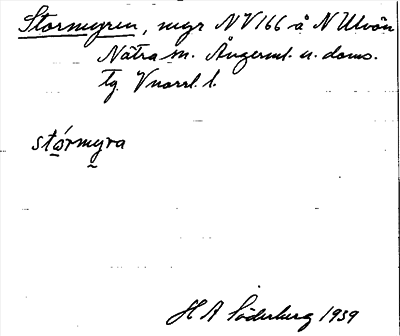 Stormyren, myr NV166 å N Ulvön
Nätra sn. Ångerml. n. doms.
tg. Vnorrl. l.
stórmyra
H A Söderberg 1939